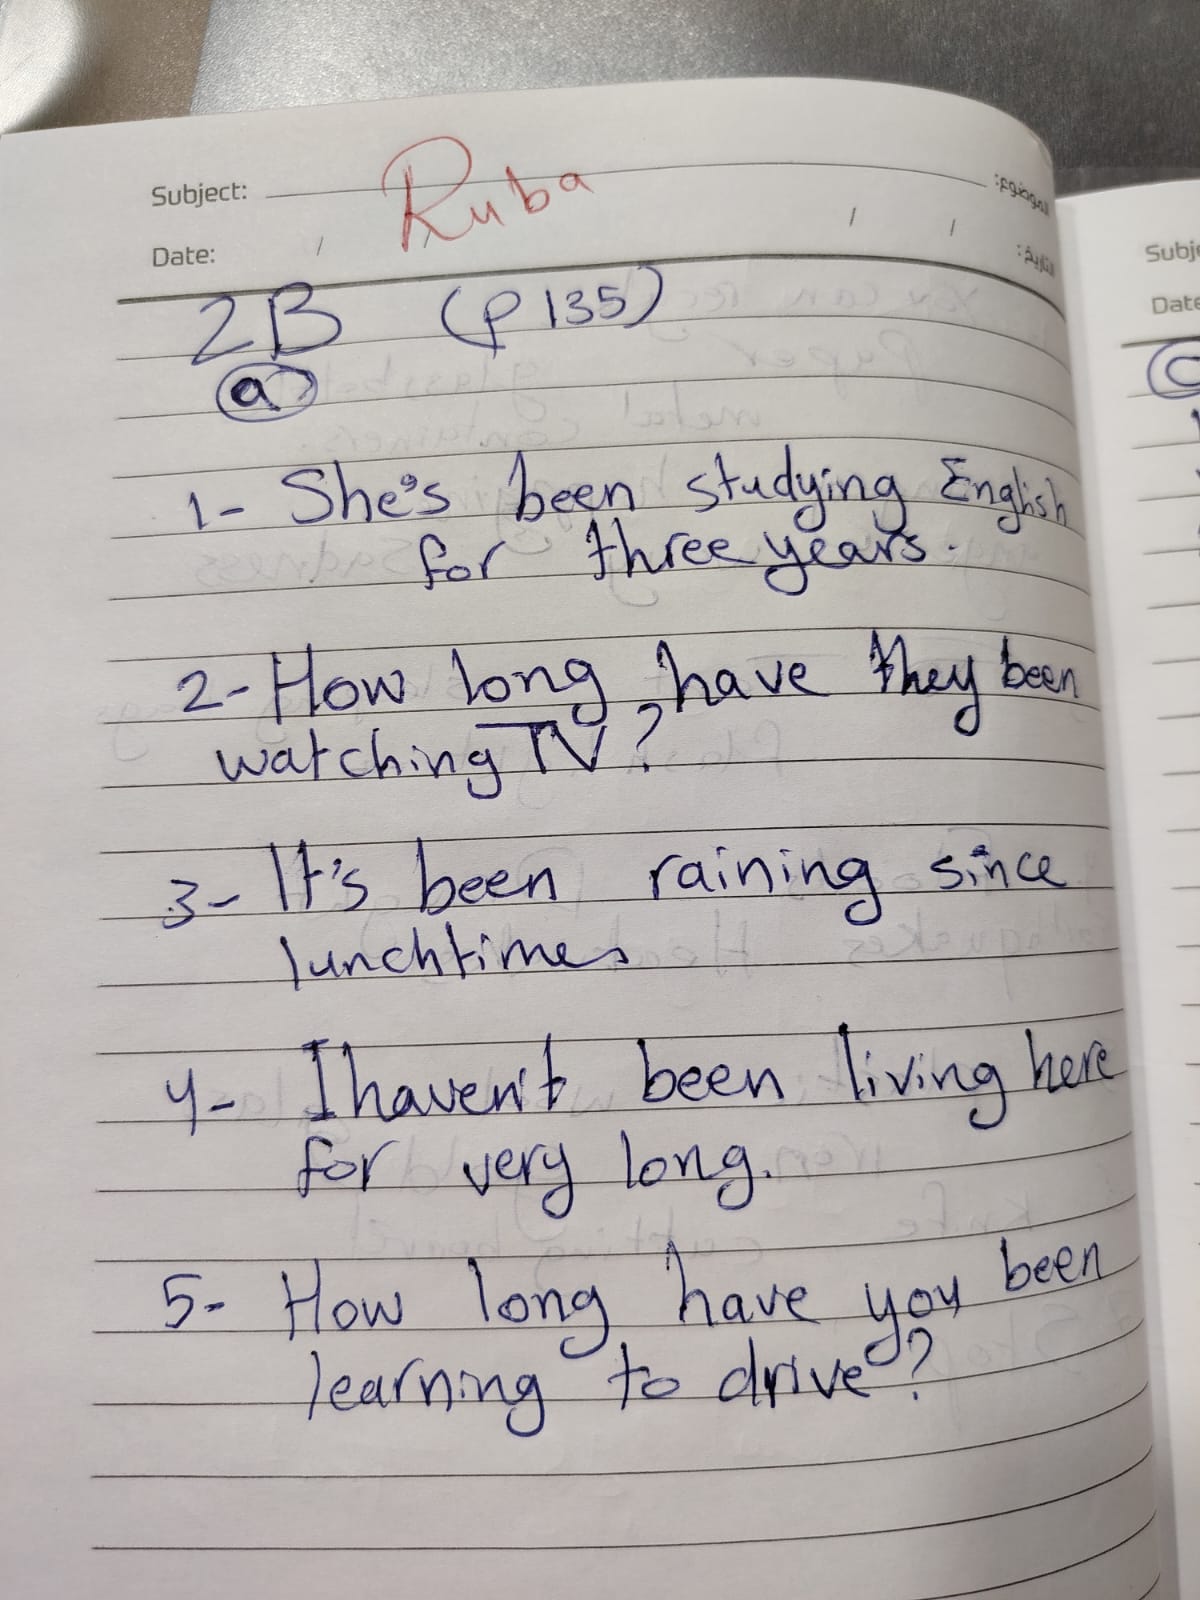 Subject: Ruba الموضوع:
Date: / / / التاريخ:
2B (P 135)
a
1- She's been studying English
for three years.
2- How long have they been
watching TV?
3- It's been raining since
lunchtimes
4- I haven't been living here
for very long.
5- How long have you been
learning to drive?